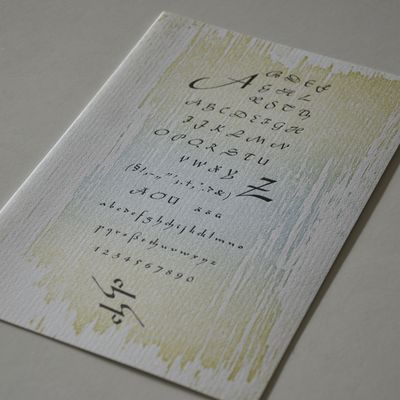 A B D E F
G H L
R S T D
A B C D E F G H
I J K L M N
O P Q R S T U
V W X Y Z
Ä Ö Ü ä ä ü
a b c d e f g h i j k l m n o
p q r s ß t u v w x y z
1 2 3 4 5 6 7 8 9 0